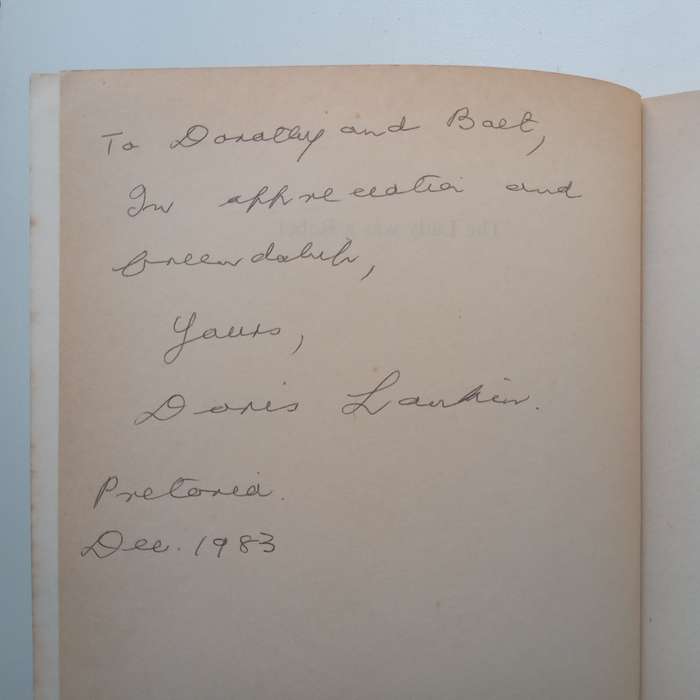 To Dorothy and Balt,
In appreciation and
friendship,
Yours,
Doris Larkin.
Pretoria.
Dec. 1983